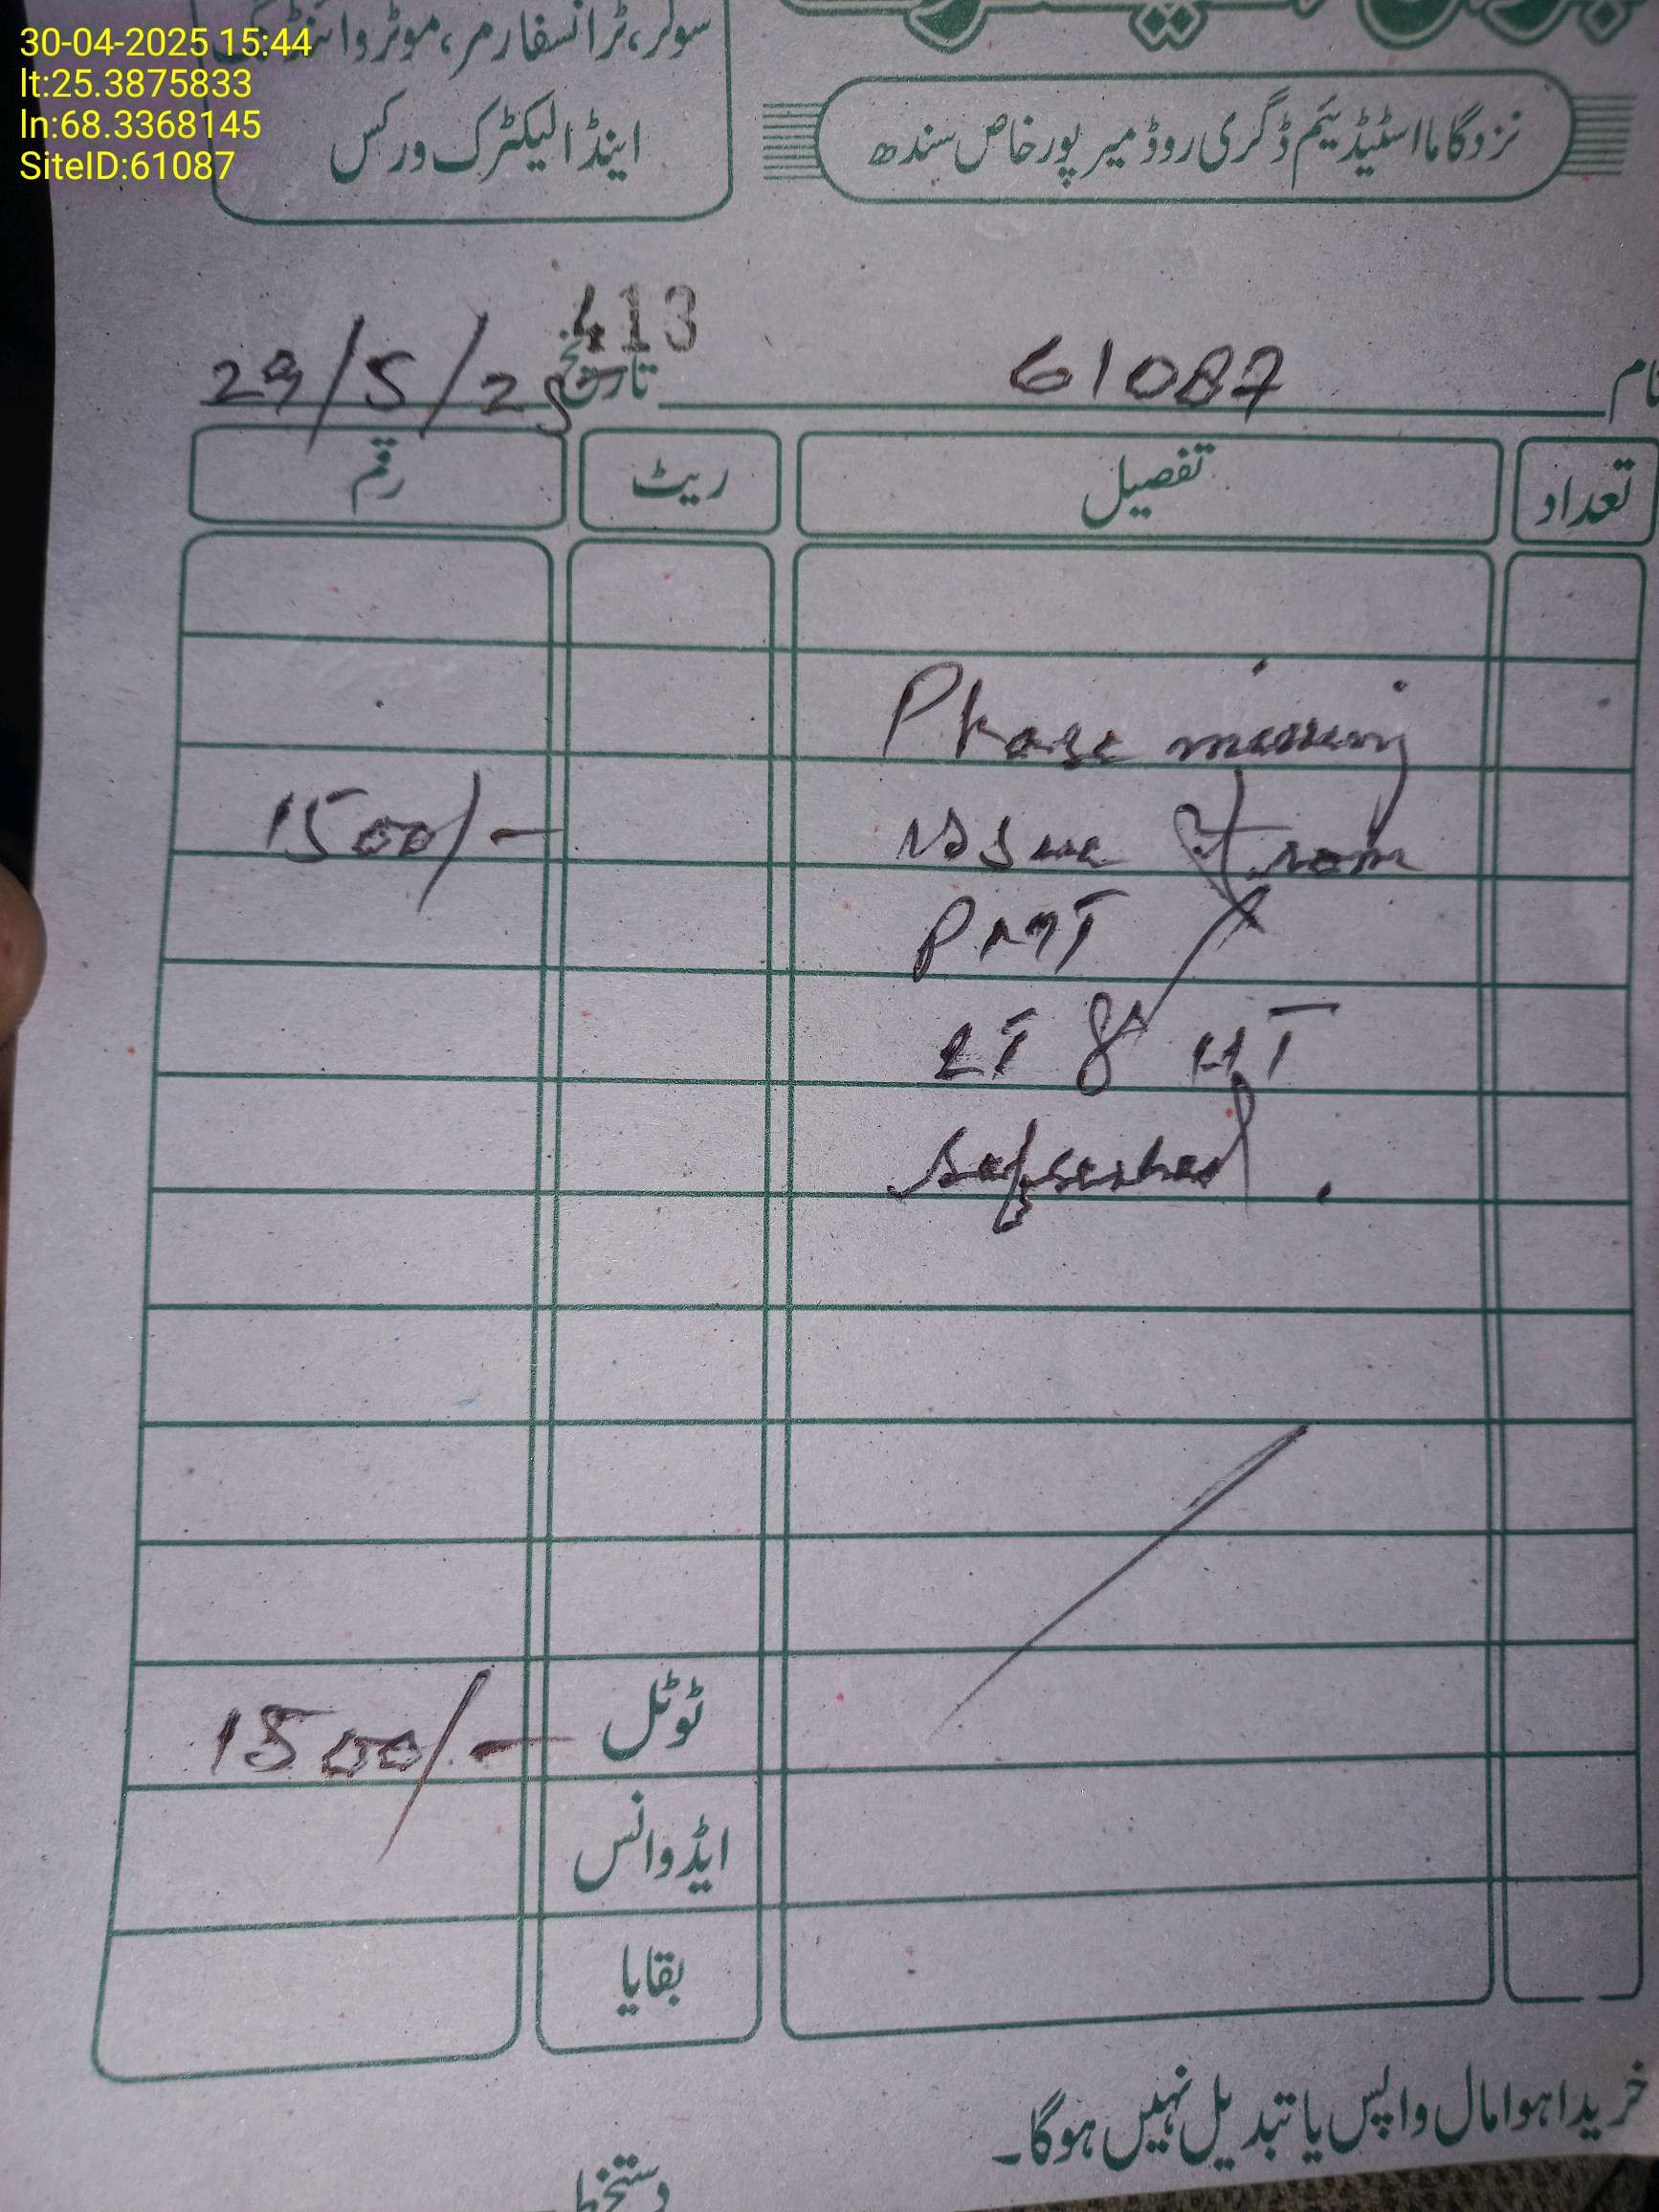 30-04-2025 15:44
lt:25.3875833
ln:68.3368145
SiteID:61087
سولر، ٹرانسفارمر، موٹر وائنڈنگ
اینڈ الیکٹرک ورکس
نزد گاما اسٹیڈیئم ڈگری روڈ میرپورخاص سندھ
413
نام 61087 تاریخ 29/5/25
تعداد تفصیل ریٹ رقم
Phase missing
issue from 1500/-
PMT
LT & HT
ٹوٹل 1500/-
ایڈوانس
بقایا
خریدا ہوا مال واپس یا تبدیل نہیں ہوگا۔
دستخط